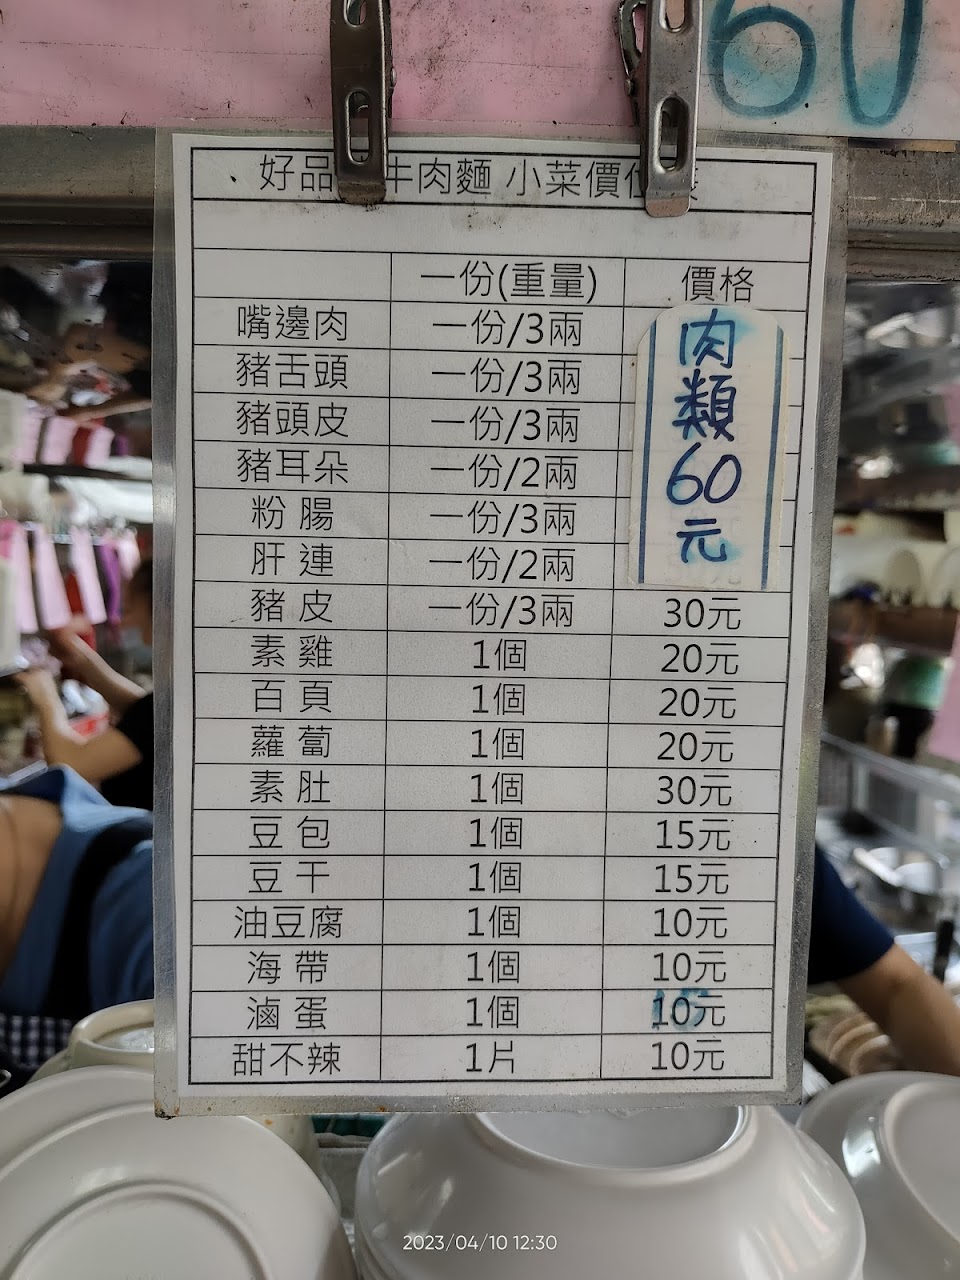 60
好品 牛肉麵 小菜價
一份(重量) 價格
嘴邊肉 一份/3兩
豬舌頭 一份/3兩
豬頭皮 一份/3兩
豬耳朵 一份/2兩
粉腸 一份/3兩
肝連 一份/2兩
肉類60元
豬皮 一份/3兩 30元
素雞 1個 20元
百頁 1個 20元
蘿蔔 1個 20元
素肚 1個 30元
豆包 1個 15元
豆干 1個 15元
油豆腐 1個 10元
海帶 1個 10元
滷蛋 1個 10元
甜不辣 1片 10元
2023/04/10 12:30